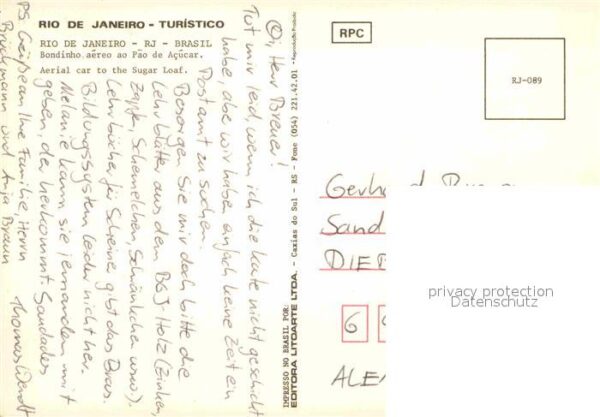 RIO DE JANEIRO - TURÍSTICO
RIO DE JANEIRO - RJ - BRASIL
Bondinho aéreo ao Pão de Açúcar.
Aerial car to the Sugar Loaf.
Oi, Herr Breuer!
Tut mir leid, wenn ich die Karte nicht geschickt
habe, aber wir haben einfach keine Zeit ein
Postamt zu suchen.
Besorgen Sie mir doch bitte die
Lehrblätter aus dem BGJ-Holz (Zinken,
Zapfen, Schemelchen, Schränkchen usw.).
Lehrbücher für Schreiner gibt das Bras.
Bildungssystem leider nicht her.
Melanie kann sie jemandem mit
geben, der herkommt. Saudades
Thomas
PS Grüße an Ihre Familie, Herrn
Brückmann und Anja Braun
IMPRESSO NO BRASIL POR:
EDITORA LITOARTE LTDA. - Caxias do Sul - RS - Fone (054) 221.42.01 - Reprodução Proibida
RPC
RJ-089
Gerhard
Sand
DIE
6
ALE
privacy protection
Datenschutz